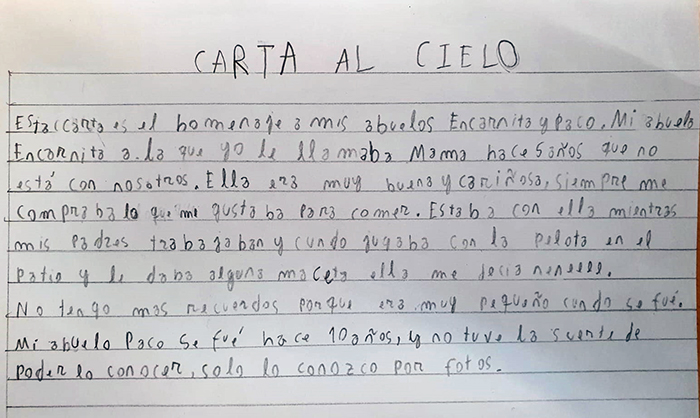 CARTA AL CIELO
Esta carta es el homenage a mis abuelos Encarnita y Paco. Mi abuela
Encarnita a la que yo le llamaba Mama hace 5 años que no
está con nosotros. Ella era muy buena y cariñosa, siempre me
compraba lo que me gustaba para comer. Estaba con ella mientras
mis padres trabajaban y cundo jugaba con la pelota en el
patio y le daba alguna maceta ella me decia neneeee.
No tengo mas recuerdos porque era muy pequeño cundo se fué.
Mi abuelo Paco se fué hace 10 años, y no tuve la suerte de
poderlo conocer, solo lo conozco por fotos.